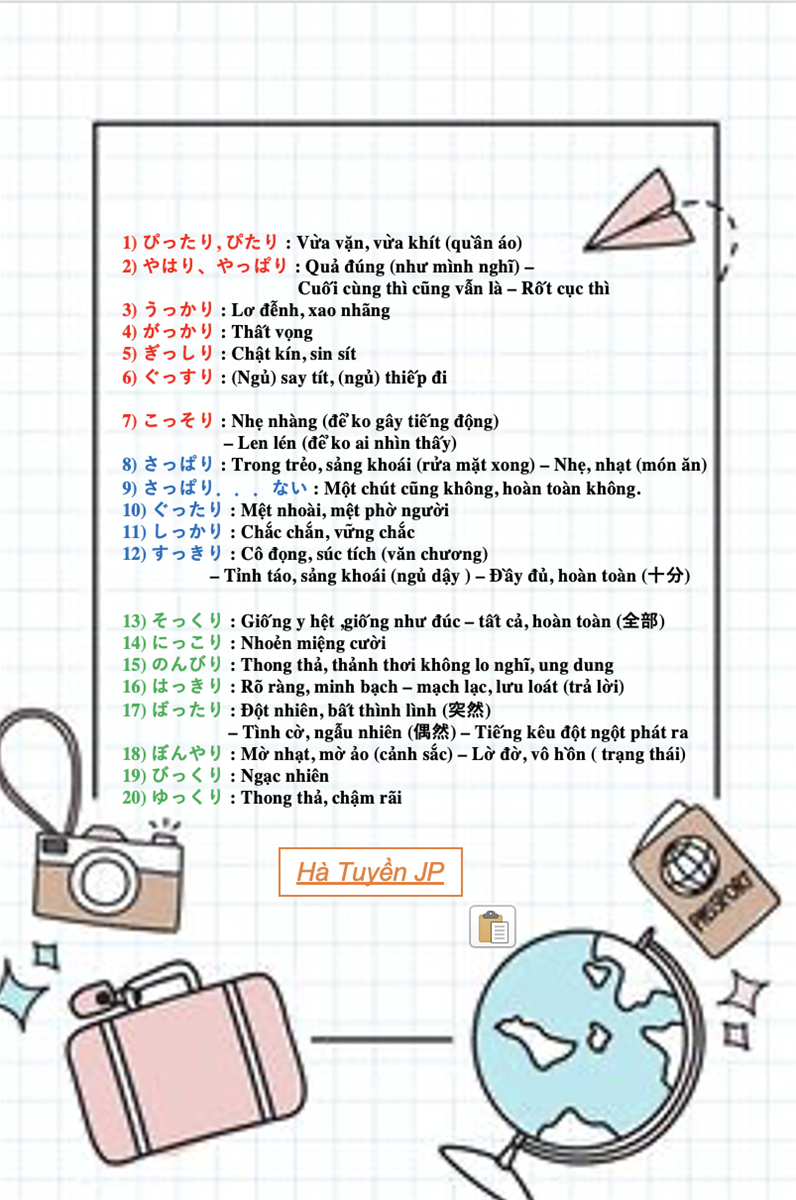 1) ぴったり, ぴたり : Vừa vặn, vừa khít (quần áo)
2) やはり、やっぱり : Quả đúng (như mình nghĩ) –
Cuối cùng thì cũng vẫn là – Rốt cục thì
3) うっかり : Lơ đễnh, xao nhãng
4) がっかり : Thất vọng
5) ぎっしり : Chật kín, sin sít
6) ぐっすり : (Ngủ) say tít, (ngủ) thiếp đi
7) こっそり : Nhẹ nhàng (để ko gây tiếng động)
– Len lén (để ko ai nhìn thấy)
8) さっぱり : Trong trẻo, sảng khoái (rửa mặt xong) – Nhẹ, nhạt (món ăn)
9) さっぱり．．． ない : Một chút cũng không, hoàn toàn không.
10) ぐったり : Mệt nhoài, mệt phờ người
11) しっかり : Chắc chắn, vững chắc
12) すっきり : Cô đọng, súc tích (văn chương)
– Tỉnh táo, sảng khoái (ngủ dậy ) – Đầy đủ, hoàn toàn (十分)
13) そっくり : Giống y hệt ,giống như đúc – tất cả, hoàn toàn (全部)
14) にっこり : Nhoẻn miệng cười
15) のんびり : Thong thả, thảnh thơi không lo nghĩ, ung dung
16) はっきり : Rõ ràng, minh bạch – mạch lạc, lưu loát (trả lời)
17) ばったり : Đột nhiên, bất thình lình (突然)
– Tình cờ, ngẫu nhiên (偶然) – Tiếng kêu đột ngột phát ra
18) ぼんやり : Mờ nhạt, mờ ảo (cảnh sắc) – Lờ đờ, vô hồn ( trạng thái)
19) びっくり : Ngạc nhiên
20) ゆっくり : Thong thả, chậm rãi
Hà Tuyền JP
PASSPORT